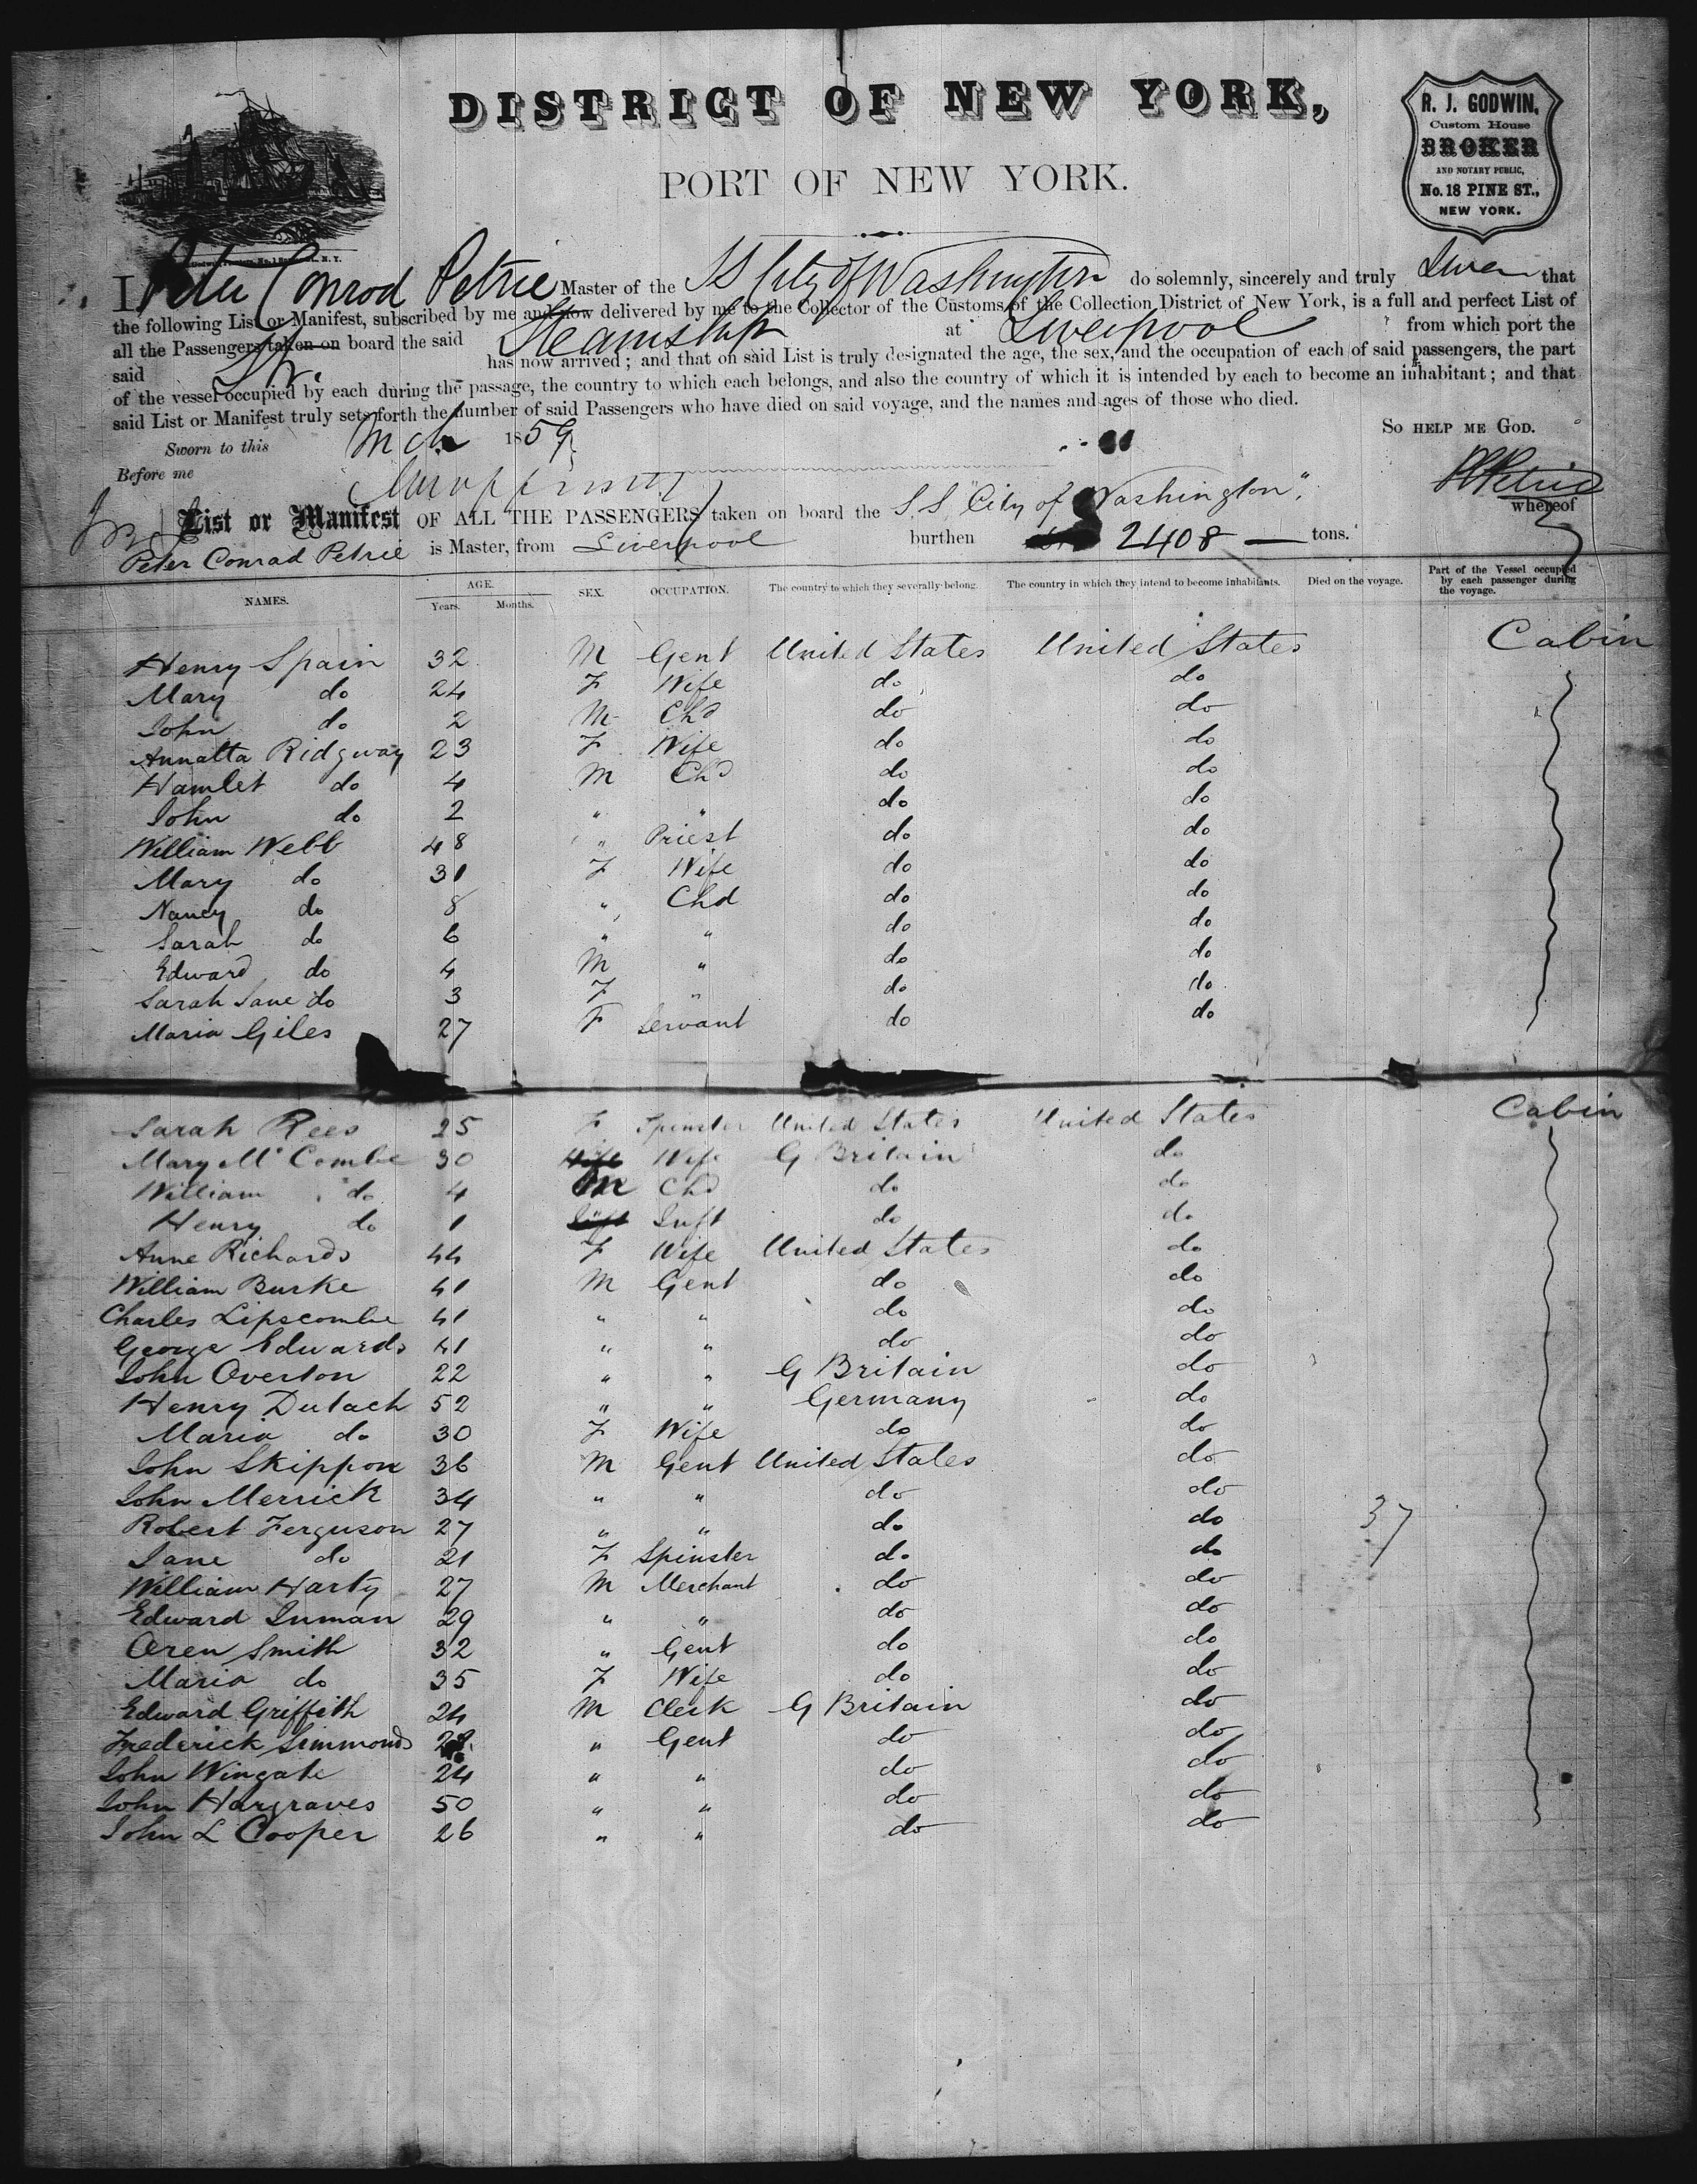 DISTRICT OF NEW YORK,
PORT OF NEW YORK.
R. J. GODWIN,
Custom House
BROKER
AND NOTARY PUBLIC,
No. 18 PINE ST.,
NEW YORK.
I, Peter Conrad Petrie Master of the SS City of Washington do solemnly, sincerely and truly Swear that
the following List or Manifest, subscribed by me and now delivered by me to the Collector of the Customs of the Collection District of New York, is a full and perfect List of
all the Passengers taken on board the said Steamship at Liverpool from which port the
said has now arrived; and that on said List is truly designated the age, the sex, and the occupation of each of said passengers, the part
of the vessel occupied by each during the passage, the country to which each belongs, and also the country of which it is intended by each to become an inhabitant; and that
said List or Manifest truly sets forth the number of said Passengers who have died on said voyage, and the names and ages of those who died.
Sworn to this Mch 1859 So help me God.
Before me
List or Manifest OF ALL THE PASSENGERS taken on board the S.S. "City of Washington" whereof
Peter Conrad Petrie is Master, from Liverpool burthen 2408 tons.
NAMES. AGE. Years. Months. SEX. OCCUPATION. The country to which they severally belong. The country in which they intend to become inhabitants. Died on the voyage. Part of the Vessel occupied by each passenger during the voyage.
Henry Spain 32 M Gent United States United States Cabin
Mary do 24 F Wife do do
John do 2 M Chd do do
Annatta Ridgway 23 F Wife do do
Hamlet do 4 M Chd do do
John do 2 " " do do
William Webb 48 " Priest do do
Mary do 31 F Wife do do
Nancy do 8 " Chd do do
Sarah do 6 " " do do
Edward do 4 M " do do
Sarah Jane do 3 F " do do
Maria Giles 27 F Servant do do
Sarah Rees 25 F Spinster United States United States Cabin
Mary McCombe 30 Wife G Britain do
William do 4 M Chd do do
Henry do 1 Inft do do
Anne Richards 44 F Wife United States do
William Burke 41 M Gent do do
Charles Lipscombe 41 " " do do
George Edwards 41 " " do do
John Overton 22 " " G Britain do
Henry Dulach 52 " " Germany do
Maria do 30 F Wife do do
John Skippon 36 M Gent United States do
John Merrick 34 " " do do
Robert Ferguson 27 " " do do 37
Jane do 21 F Spinster do do
William Harty 27 M Merchant do do
Edward Inman 29 " " do do
Oren Smith 32 " Gent do do
Maria do 35 F Wife do do
Edward Griffith 24 M Clerk G Britain do
Frederick Simmonds 28 " Gent do do
John Wingate 24 " " do do
John Hargraves 50 " " do do
John L Cooper 26 " " do do